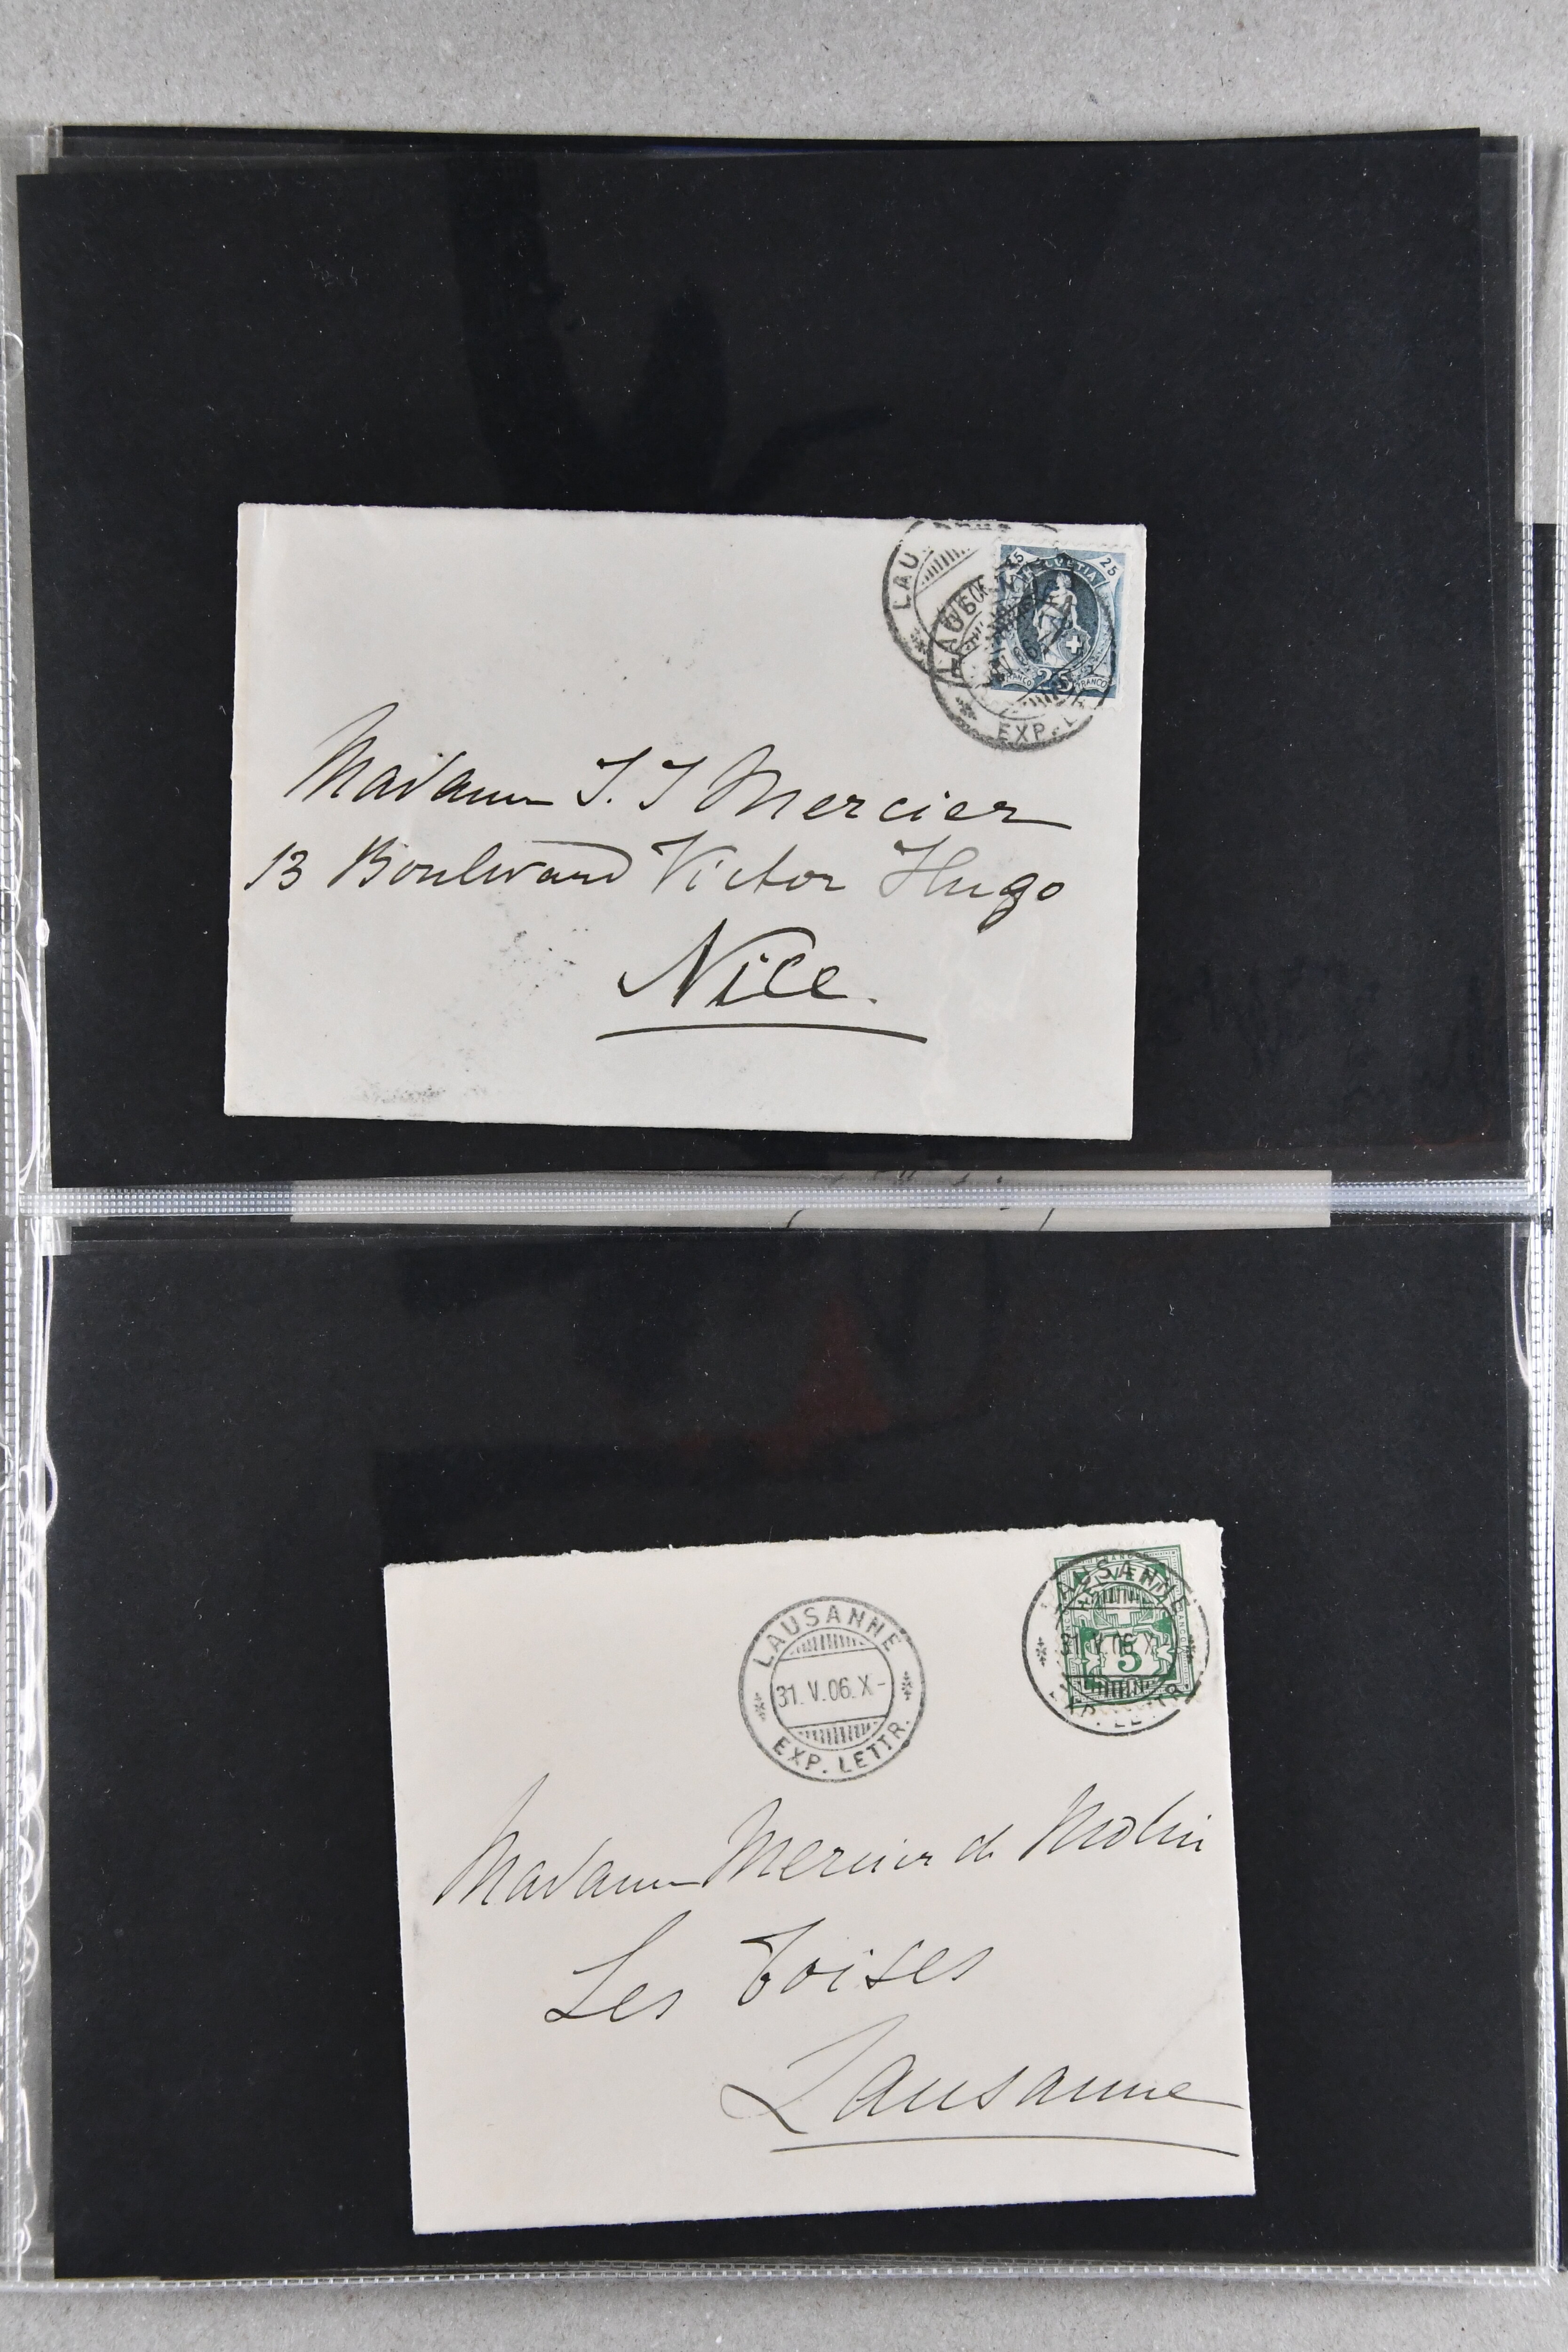 LAU
LAU
EXP. L
HELVETIA
25
25
FRANCO
FRANCO
Madame J. J Mercier
13 Boulevard Victor Hugo
Nice.
LAUSANNE
31. V. 06. X-
EXP. LETTR.
LAUSANNE
31. V. 06. X
5
EXP. LETTR.
Madame Mercier de Molin
Les Toises
Lausanne